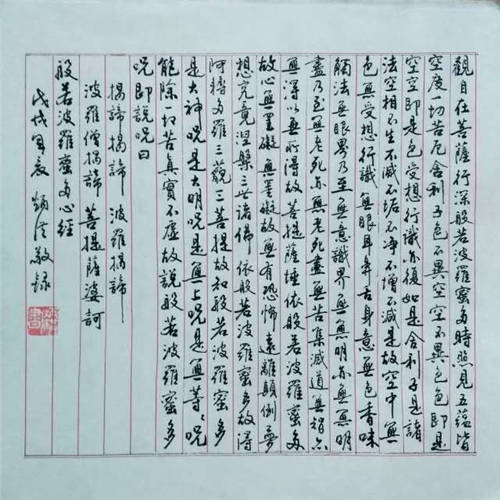 觀自在菩薩行深般若波羅蜜多時照見五蘊皆
空度一切苦厄舍利子色不異空空不異色色即是
空空即是色受想行識亦復如是舍利子是諸
法空相不生不滅不垢不淨不增不減是故空中無
色無受想行識無眼耳鼻舌身意無色香味
觸法無眼界乃至無意識界無無明亦無無明
盡乃至無老死亦無老死盡無苦集滅道無智亦
無得以無所得故菩提薩埵依般若波羅蜜多
故心無罣礙無罣礙故無有恐怖遠離顛倒夢
想究竟涅槃三世諸佛依般若波羅蜜多故得
阿耨多羅三藐三菩提故知般若波羅蜜多
是大神呪是大明呪是無上呪是無等々呪
能除一切苦真實不虛故說般若波羅蜜多
呪即說呪曰
揭諦揭諦 波羅揭諦
波羅僧揭諦 菩提薩婆訶
般若波羅蜜多心經
戊戌 敬錄